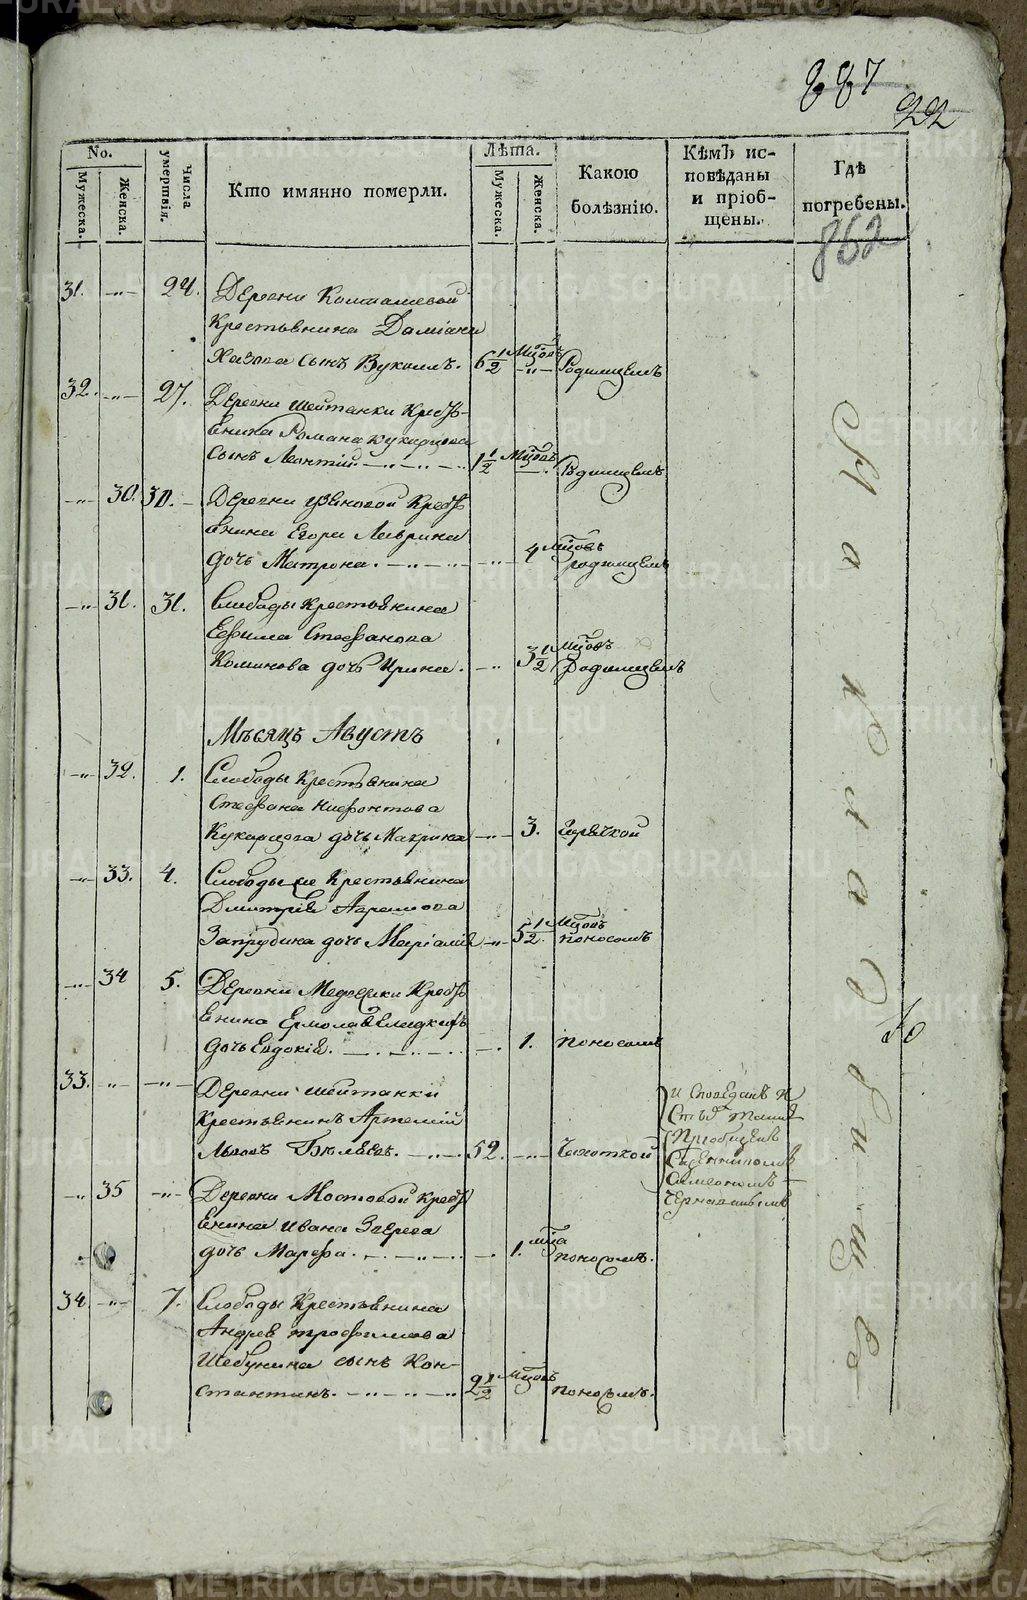 887
22
No.
Мужеска.
Женска.
Числа умертвія.
Кто имянно померли.
Лѣта.
Мужеска.
Женска.
Какою болѣзнію.
Кѣмъ ис-
повѣданы
и пріоб-
щены.
Гдѣ
погребены.
862
31. -"- 24. Деревни
Крестьянина Даміана
сынъ Вукоилъ. 6 1/2 Мцовъ -"- Родимцемъ
32. -"- 27. Деревни Шайтанки Кресть-
янина Романа Кукарцова
сынъ Леонтій. 1 1/2 Мцовъ Родимцемъ
-"- 30. 30. Деревни Кресть
янина Егора Лаврина
дочь Матрона. -"- 4 Мцовъ родимцемъ
-"- 31. 31. Слободы Крестьянина
Ефима Стефанова
дочь Ирина. -"- 3 1/2 Мцовъ Родимцемъ
Мѣсяцъ Августъ
-"- 32. 1. Слободы Крестьянина
Стефана Нифонтова
Кукарцова дочь Макрина -"- 3. Горячкой
-"- 33. 4. Слободы Крестьянина
Дмитрія
Запрудина дочь -"- 5 1/2 Мцовъ поносомъ
-"- 34 5. Деревни Кресть
янина Ермолая
дочь Евдокія. -"- 1. поносомъ
33. -"- -"- Деревни Шайтанки
Крестьянинъ Артемій
Львовъ Бѣляевъ. 52. -"- Чахоткой
Исповѣданъ и
Пріобщенъ
Священникомъ
Симеономъ
-"- 35 -"- Деревни Мостовой Кресть
янина Ивана Зверева
дочь Марѳа. -"- 1. мца поносомъ.
34. -"- 7. Слободы Крестьянина
Андрея Трофимова
Шабунина сынъ Кон-
стантинъ. 2 1/2 Мцовъ поносомъ.
На Кладбище
METRIKI.GASO-URAL.RU